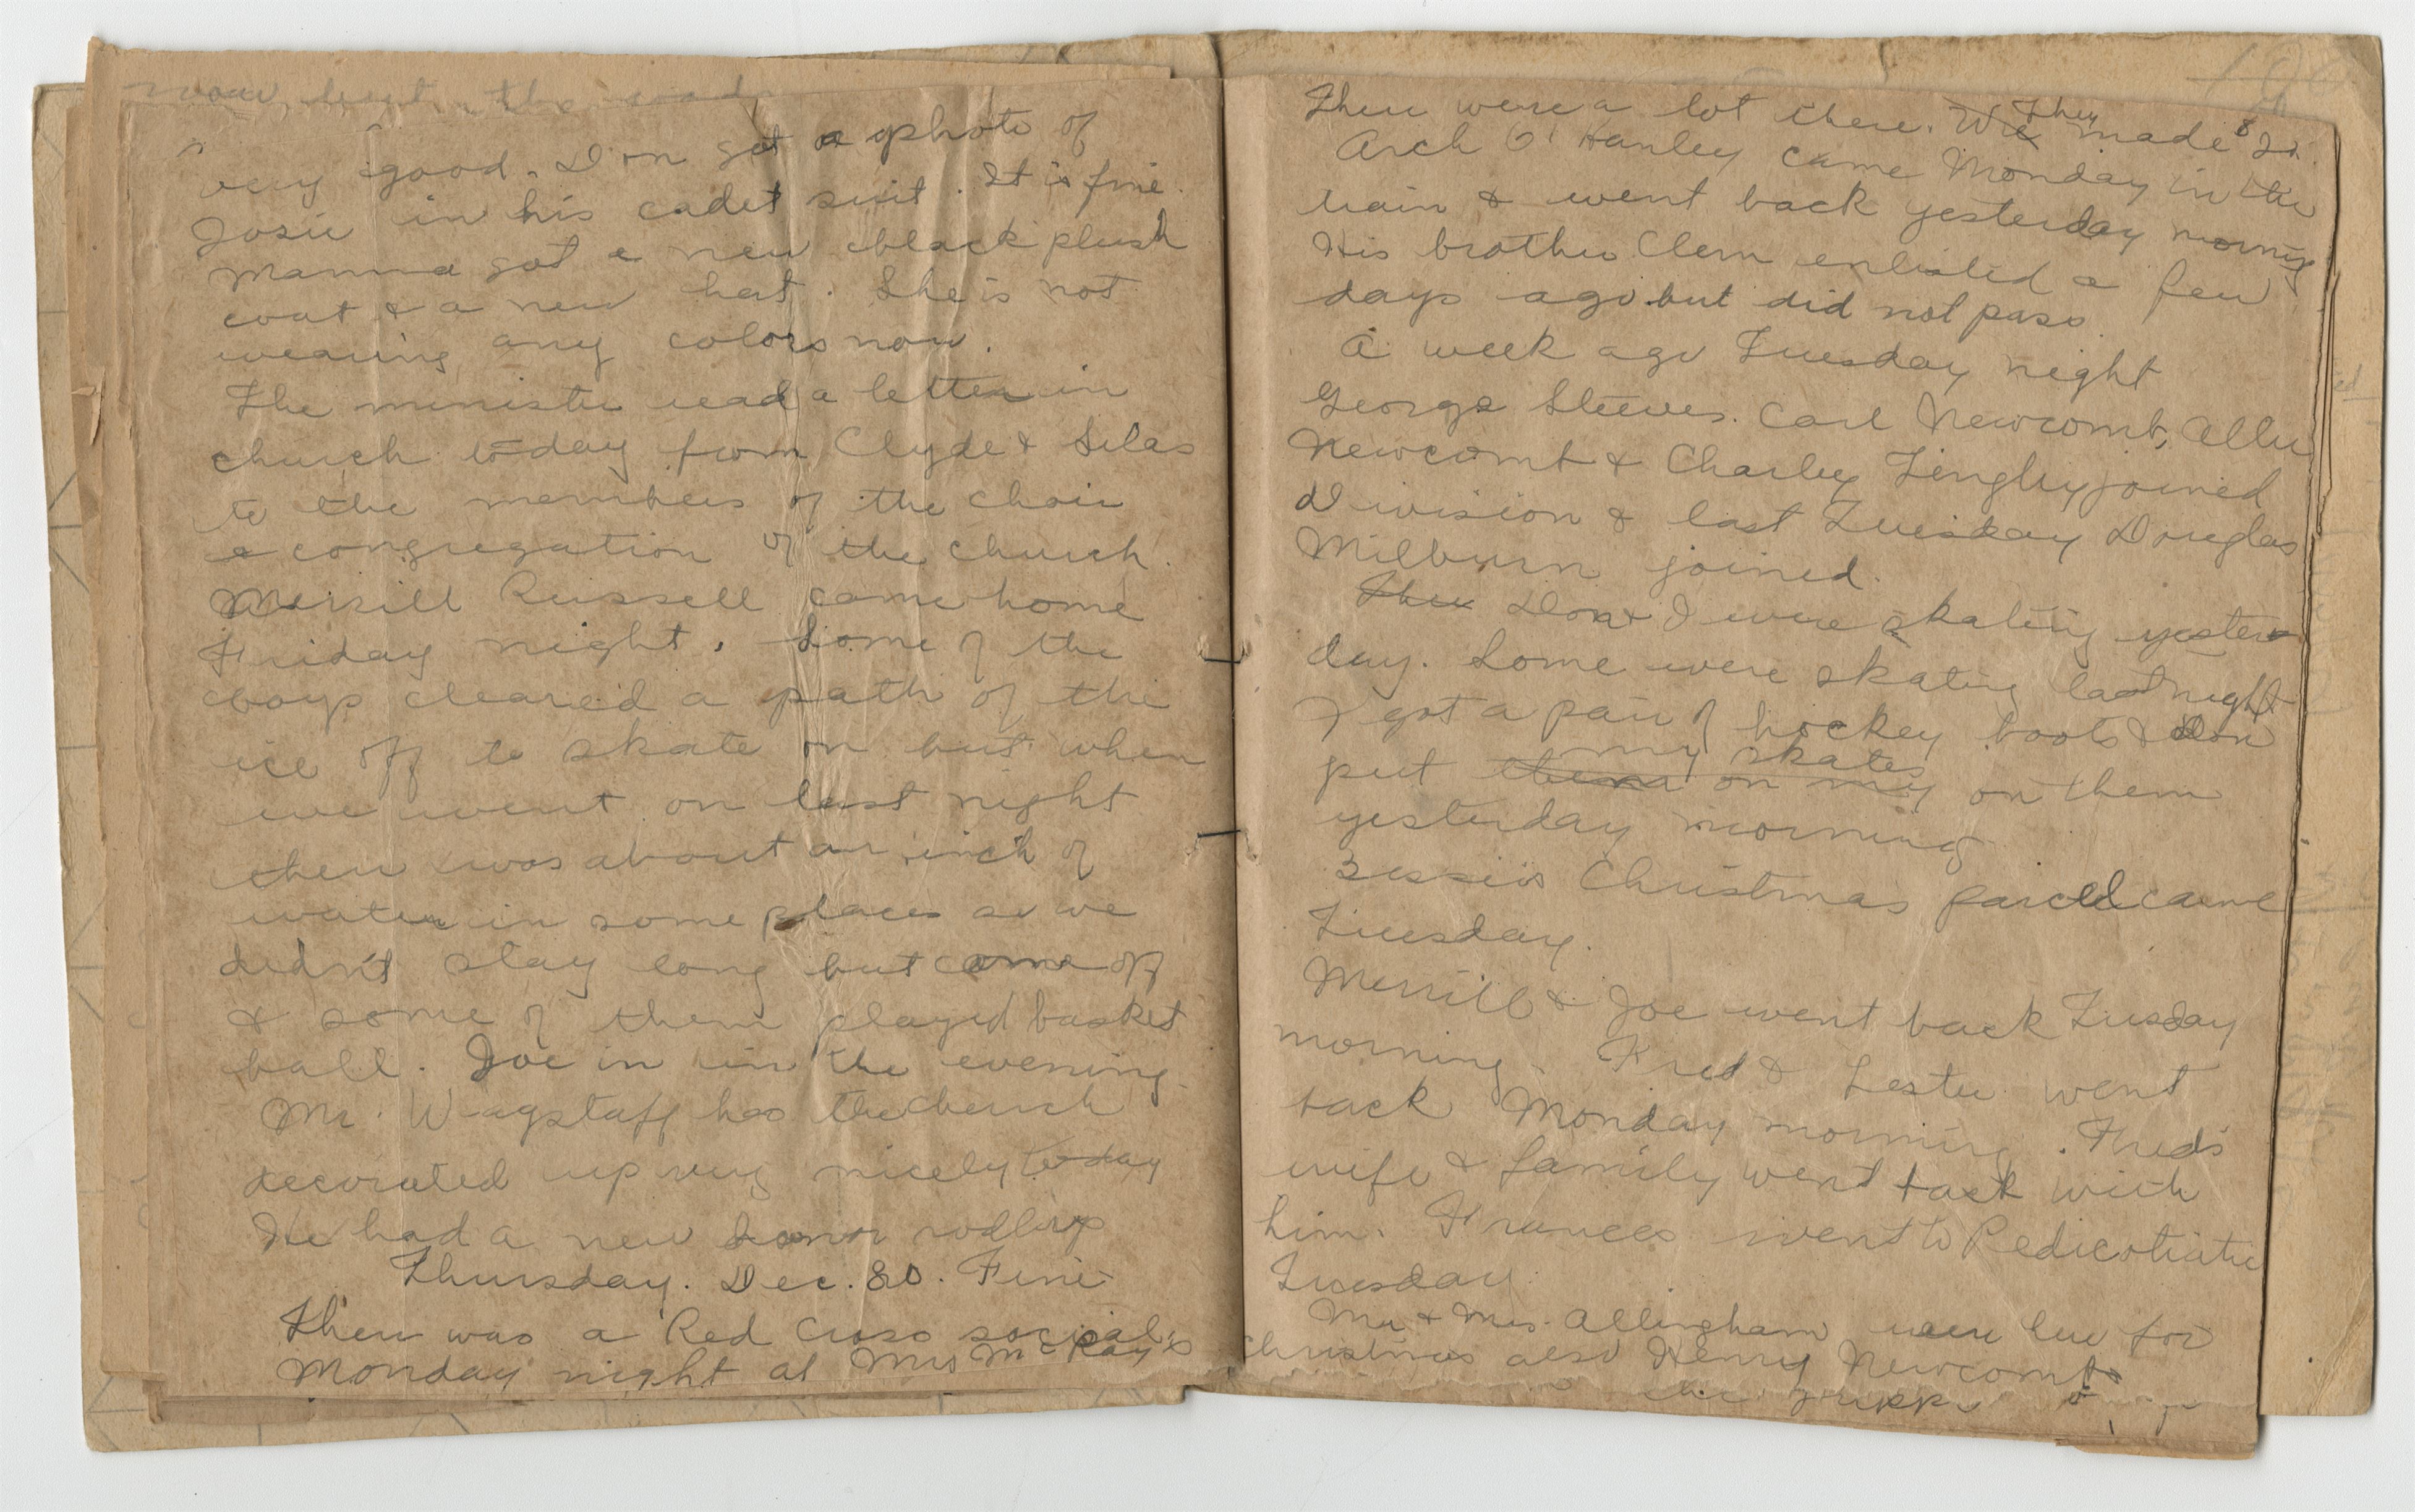 now, but the roads
very good. Don got a photo of
Josie in his cadet suit. It is fine.
Mamma got a new black plush
coat & a new hat. She is not
wearing any colors now.
The minister read a letter in
church to-day from Clyde & Silas
to the members of the choir
& congregation of the church.
Merrill Russell came home
Friday night. Some of the
boys cleared a path of the
ice off to skate on but when
we went on last night
there was about an inch of
water in some places so we
didn't stay long but came off
& some of them played basket
ball. Joe in in the evening.
Mr. Wagstaff has the church
decorated up very nicely to-day
He had a new
Thursday. Dec. 30. Fine
There was a Red Cross social
Monday night at Mrs McKay's
There were a lot there. We They made $21.
Arch O'Hanley came Monday in the
train & went back yesterday morning
His brother Clem enlisted a few
days ago but did not pass.
A week ago Tuesday night
George Steeves. Carl Newcomb, Allie
Newcomb & Charley Tingley joined
Division & last Tuesday Douglas
Milburn joined.
Ther Don & I were skating yester
day. Some were skating last night
I got a pair of hockey boots & Don
my skates
put them on my on them
yesterday morning
Bessie's Christmas parcel came
Tuesday.
Merrill & Joe went back Tusday
morning. Fred & Lester went
back Monday morning. Fred's
wife & family went back with
him. Frances went to Pedicodiac
Tuesday.
Mr. & Mrs. Allingham were here for
Christmas also Henry Newcomb
the grippe